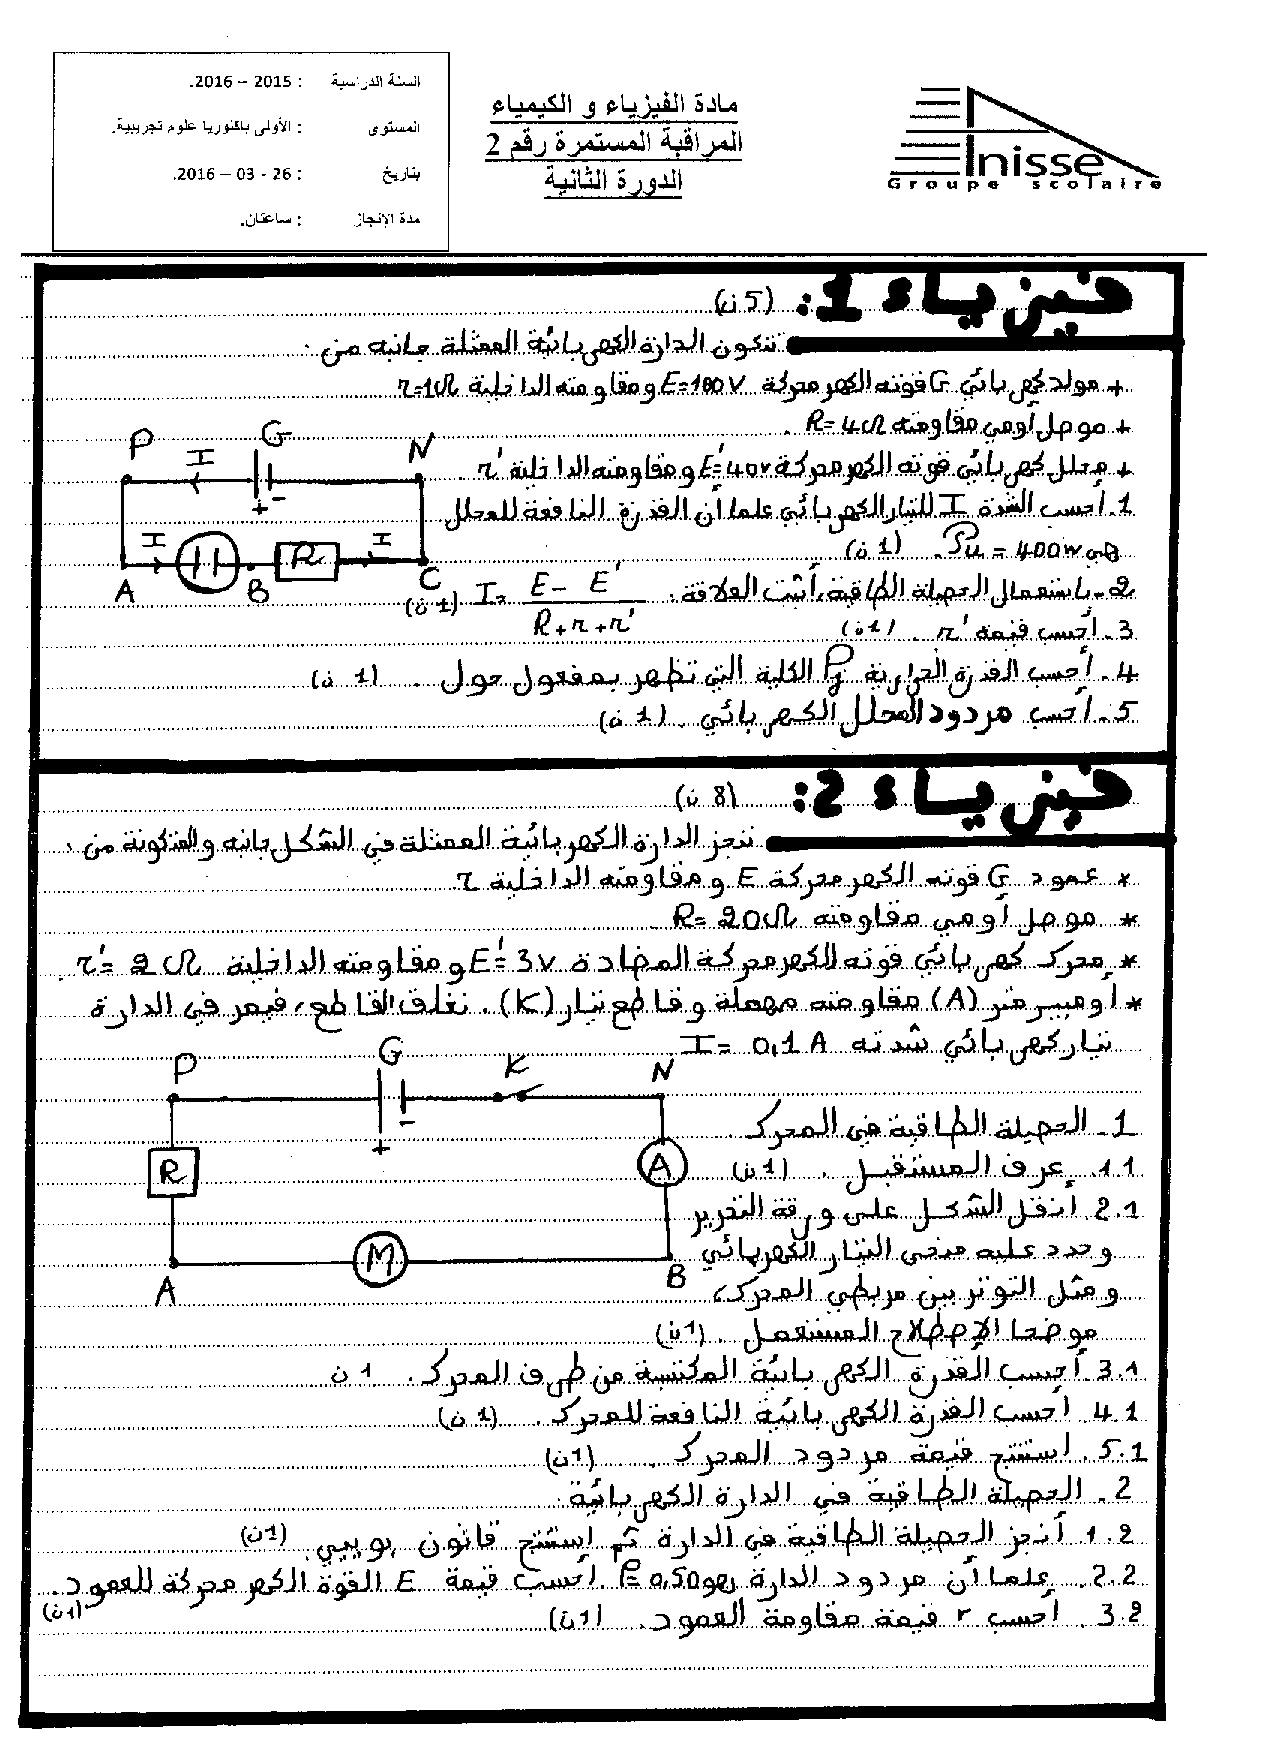 السنة الدراسية : 2015 – 2016.
المستوى : الأولى باكلوريا علوم تجريبية.
بتاريخ : 26 - 03 – 2016.
مدة الإنجاز : ساعتان.
مادة الفيزياء و الكيمياء
المراقبة المستمرة رقم 2
الدورة الثانية
Anisse
Groupe scolaire
فيزياء 1: (5 ن)
تتكون الدارة الكهربائية الممثلة جانبه من .
+ مولد كهربائي G قوته الكهرمحركة E=100V ومقاومته الداخلية r=1Ω
+ موصل أومي مقاومته R=4Ω .
+ محلل كهربائي قوته الكهرمحركة E'=40V ومقاومته الداخلية r'.
P G N
I
+ -
I I
R
A B C
1. أحسب الشدة I للتيار الكهربائي علما أن القدرة النافعة للمحلل
هي Pu = 400W. (1 ن)
2- باستعمال الحصيلة الطاقية، أثبت العلاقة: I = (E - E') / (R+r+r') (1 ن)
3. أحسب قيمة r' . (1 ن)
4. أحسب القدرة الحرارية Pj الكلية التي تظهر بمفعول جول . (1 ن)
5. أحسب مردود المحلل الكهربائي . (1 ن)
فيزياء 2: (8 ن)
ننجز الدارة الكهربائية الممثلة في الشكل جانبه والمتكونة من :
* عمود G قوته الكهرمحركة E ومقاومته الداخلية r
* موصل أومي مقاومته R= 20Ω
* محرك كهربائي قوته الكهرمحركة المضادة E'=3V ومقاومته الداخلية r'= 2Ω .
* أومبيرمتر (A) مقاومته مهملة وقاطع تيار (K). نغلق القاطع، فيمر في الدارة
تيار كهربائي شدته I= 0,1A
P G K N
+ -
R A
M
A B
1- الحصيلة الطاقية في المحرك .
1.1. عرف المستقبل . (1 ن)
2.1. أنقل الشكل على ورقة التحرير
وحدد عليه منحى التيار الكهربائي
ومثل التوتر بين مربطي المحرك،
موضحا الإصطلاح المستعمل . (1ن)
3.1 أحسب القدرة الكهربائية المكتسبة من طرف المحرك. 1 ن
4.1 أحسب القدرة الكهربائية النافعة للمحرك. (1 ن)
5.1. استنتج قيمة مردود المحرك . (1ن)
2. الحصيلة الطاقية في الدارة الكهربائية.
1.2 أنجز الحصيلة الطاقية في الدارة ثم إستنتج قانون بويي. (1ن)
2.2. علما أن مردود الدارة هو ρ=0,50 أحسب قيمة E القوة الكهرمحركة للعمود. (1ن)
3.2. أحسب r قيمة مقاومة العمود. (1ن)